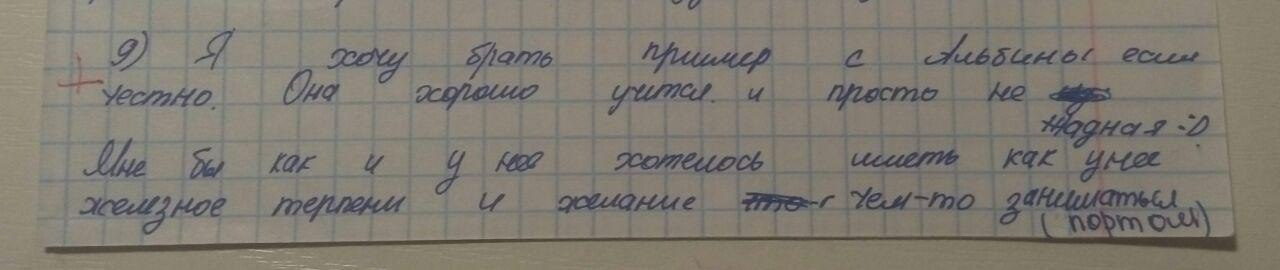 9) Я хочу брать пример с Альбины если
честно. Она хорошо учится и просто не
жадная :D
Мне бы как и у нее хотелось иметь как у нее
железное терпени и желание чем-то заниматься
(портом)